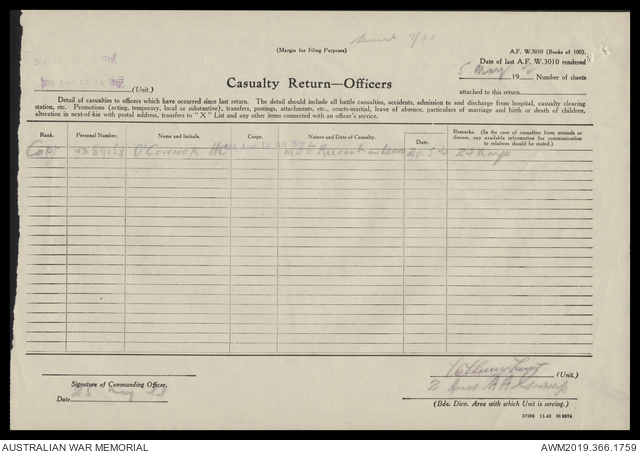 (Margin for Filing Purposes)
A.F. W.3010 (Books of 100).
Date of last A.F. W.3010 rendered
5 May 19
Number of sheets
attached to this return
Aust Lt AA Bty
(Unit.)
Casualty Return—Officers
Detail of casualties to officers which have occurred since last return. The detail should include all battle casualties, accidents, admission to and discharge from hospital, casualty clearing
station, etc. Promotions (acting, temporary, local or substantive), transfers, postings, attachments, etc., courts-martial, leave of absence, particulars of marriage and birth or death of children,
alteration in next-of-kin with postal address, transfers to "X" List and any other items connected with an officer's service.
Rank. Personal Number. Name and Initials. Corps. Nature and Date of Casualty. Date. Remarks. (In the case of casualties from wounds or disease, any available information for communication to relatives should be stated.)
Capt O'CONNOR HC Aust Lt AA Bty Recreation Leave
Signature of Commanding Officer.
(Unit.)
Date May
2 Aust A A Group
(Bde. Divn. Area with which Unit is serving.)
AUSTRALIAN WAR MEMORIAL
AWM2019.366.1759